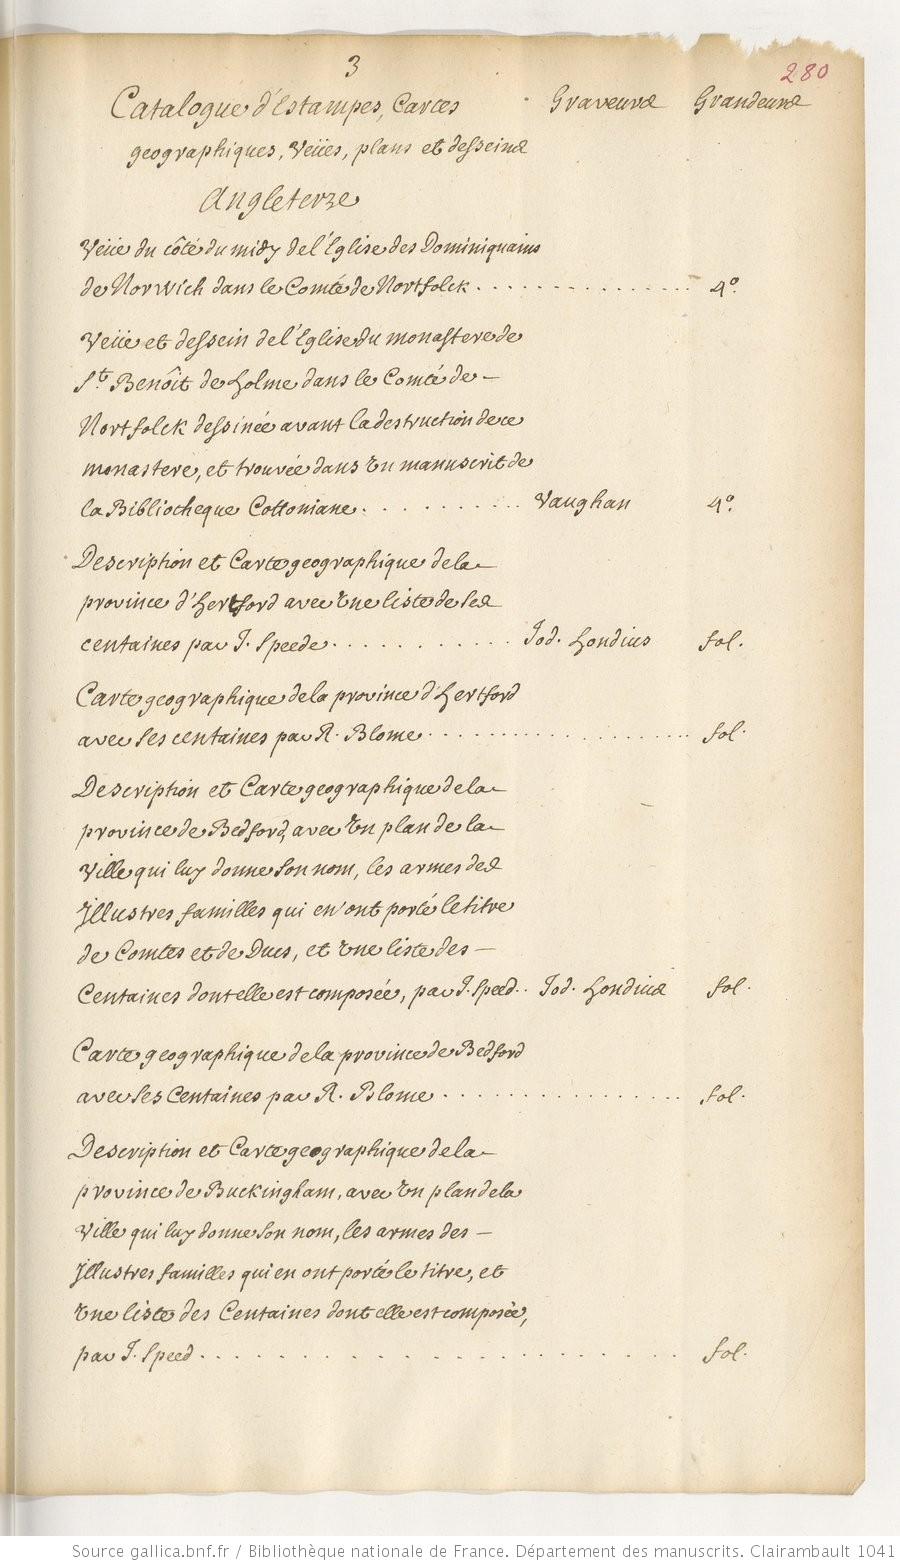 3
280
Catalogue d'Estampes, Cartes Graveurs Grandeurs
geographiques, Veües, plans et desseins
Angleterre
Veüe du côté du midy de l'Eglise des Dominiquains
de Norwich dans le Comté de Nortfolck . . . . . . . . . . . . . . . 4º.
Veüe et dessein de l'Eglise du monastere de
St. Benoît de Holme dans le Comté de –
Nortfolck dessinée avant la destruction de ce
monastere, et trouvée dans un manuscrit de
la Bibliotheque Cottoniane . . . . . . . . . . Vaughan 4º.
Description et Carte geographique de la
province d'Hertford avec une liste de ses
centaines par J. Speede . . . . . . . . . . . Jod. Hondius fol.
Carte geographique de la province d'Hertford
avec ses centaines par R. Blome . . . . . . . . . . . . . . . . . . fol.
Description et Carte geographique de la
province de Bedford, avec un plan de la
Ville qui luy donne son nom, les armes des
Illustres familles qui en ont porté le titre
de Comtes et de Ducs, et une liste des –
Centaines dont elle est composée, par J. Speed . . Jod. Hondius fol.
Carte geographique de la province de Bedford
avec ses Centaines par R. Blome . . . . . . . . . . . . . . . . fol.
Description et Carte geographique de la
province de Buckingham, avec un plan de la
Ville qui luy donne son nom, les armes des –
Illustres familles qui en ont porté le titre, et
une liste des Centaines dont elle est composée,
par J. Speed . . . . . . . . . . . . . . . . . . . fol.
Source gallica.bnf.fr / Bibliothèque nationale de France. Département des manuscrits. Clairambault 1041